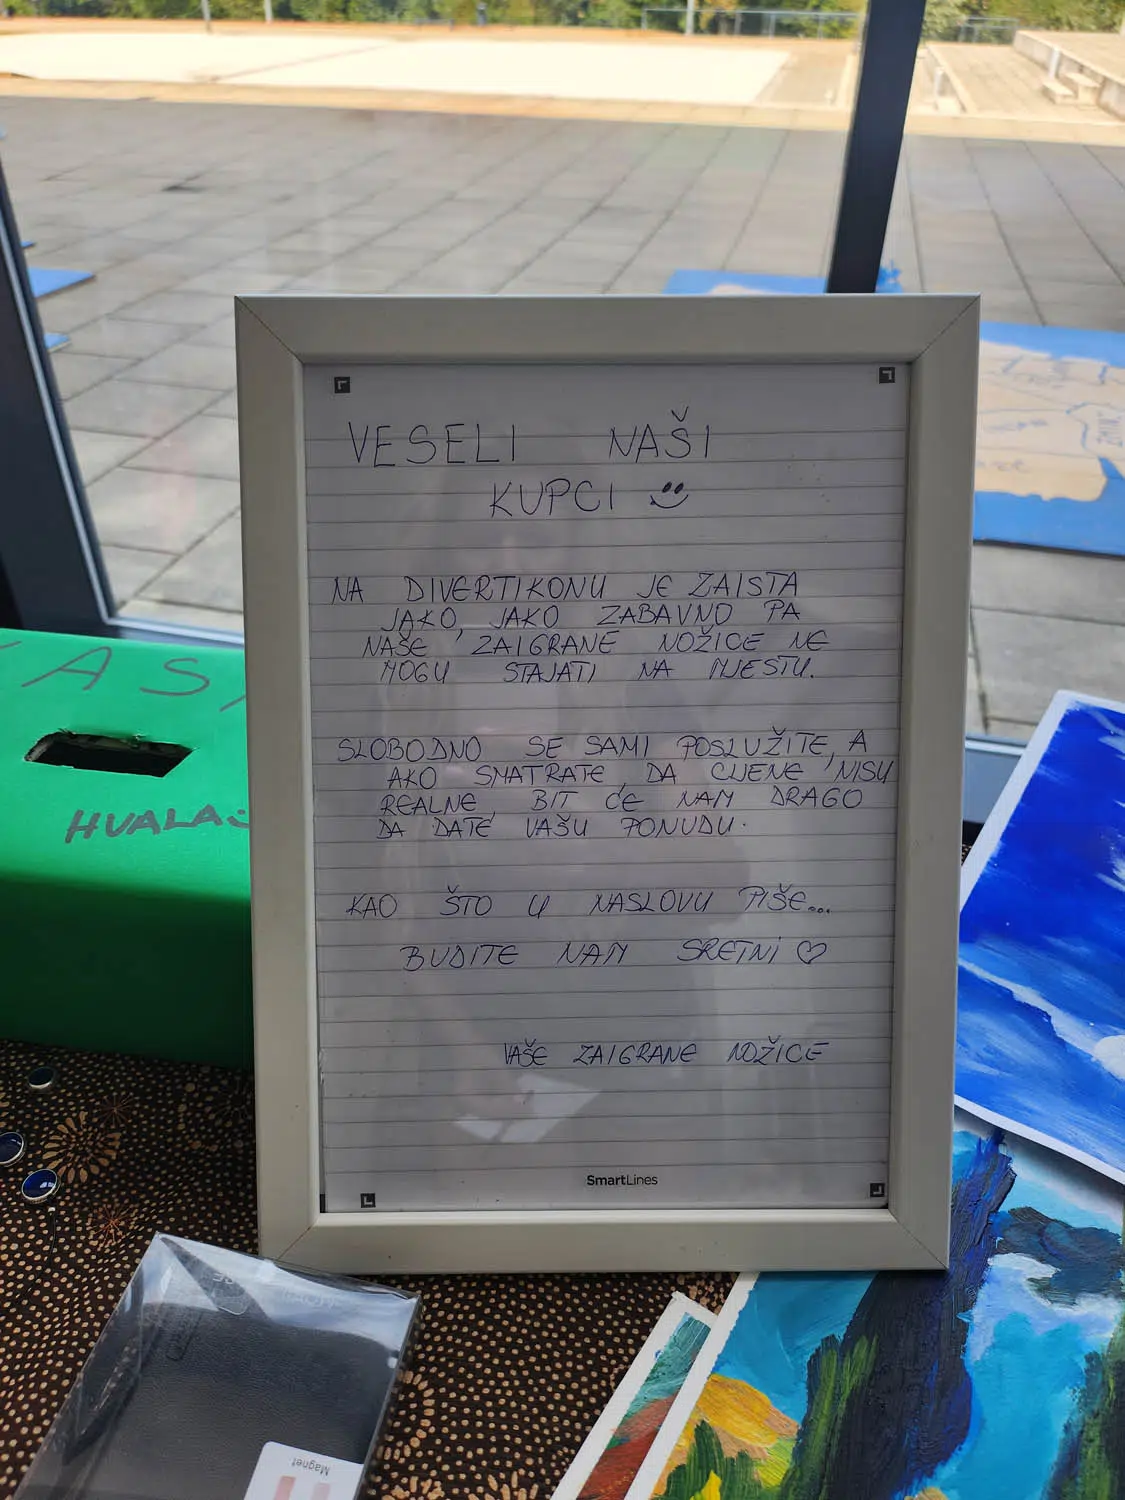 VESELI NAŠI
KUPCI
NA DIVERTIKONU JE ZAISTA
JAKO, JAKO ZABAVNO PA
NAŠE ZAIGRANE NOŽICE NE
MOGU STAJATI NA MJESTU.
SLOBODNO SE SAMI POSLUŽITE, A
AKO SMATRATE DA CIJENE NISU
REALNE, BIT ĆE NAM DRAGO
DA DATE VAŠU PONUDU.
KAO ŠTO U NASLOVU PIŠE...
BUDITE NAM SRETNI ♡
VAŠE ZAIGRANE NOŽICE
SmartLines
HVALA
Magnet